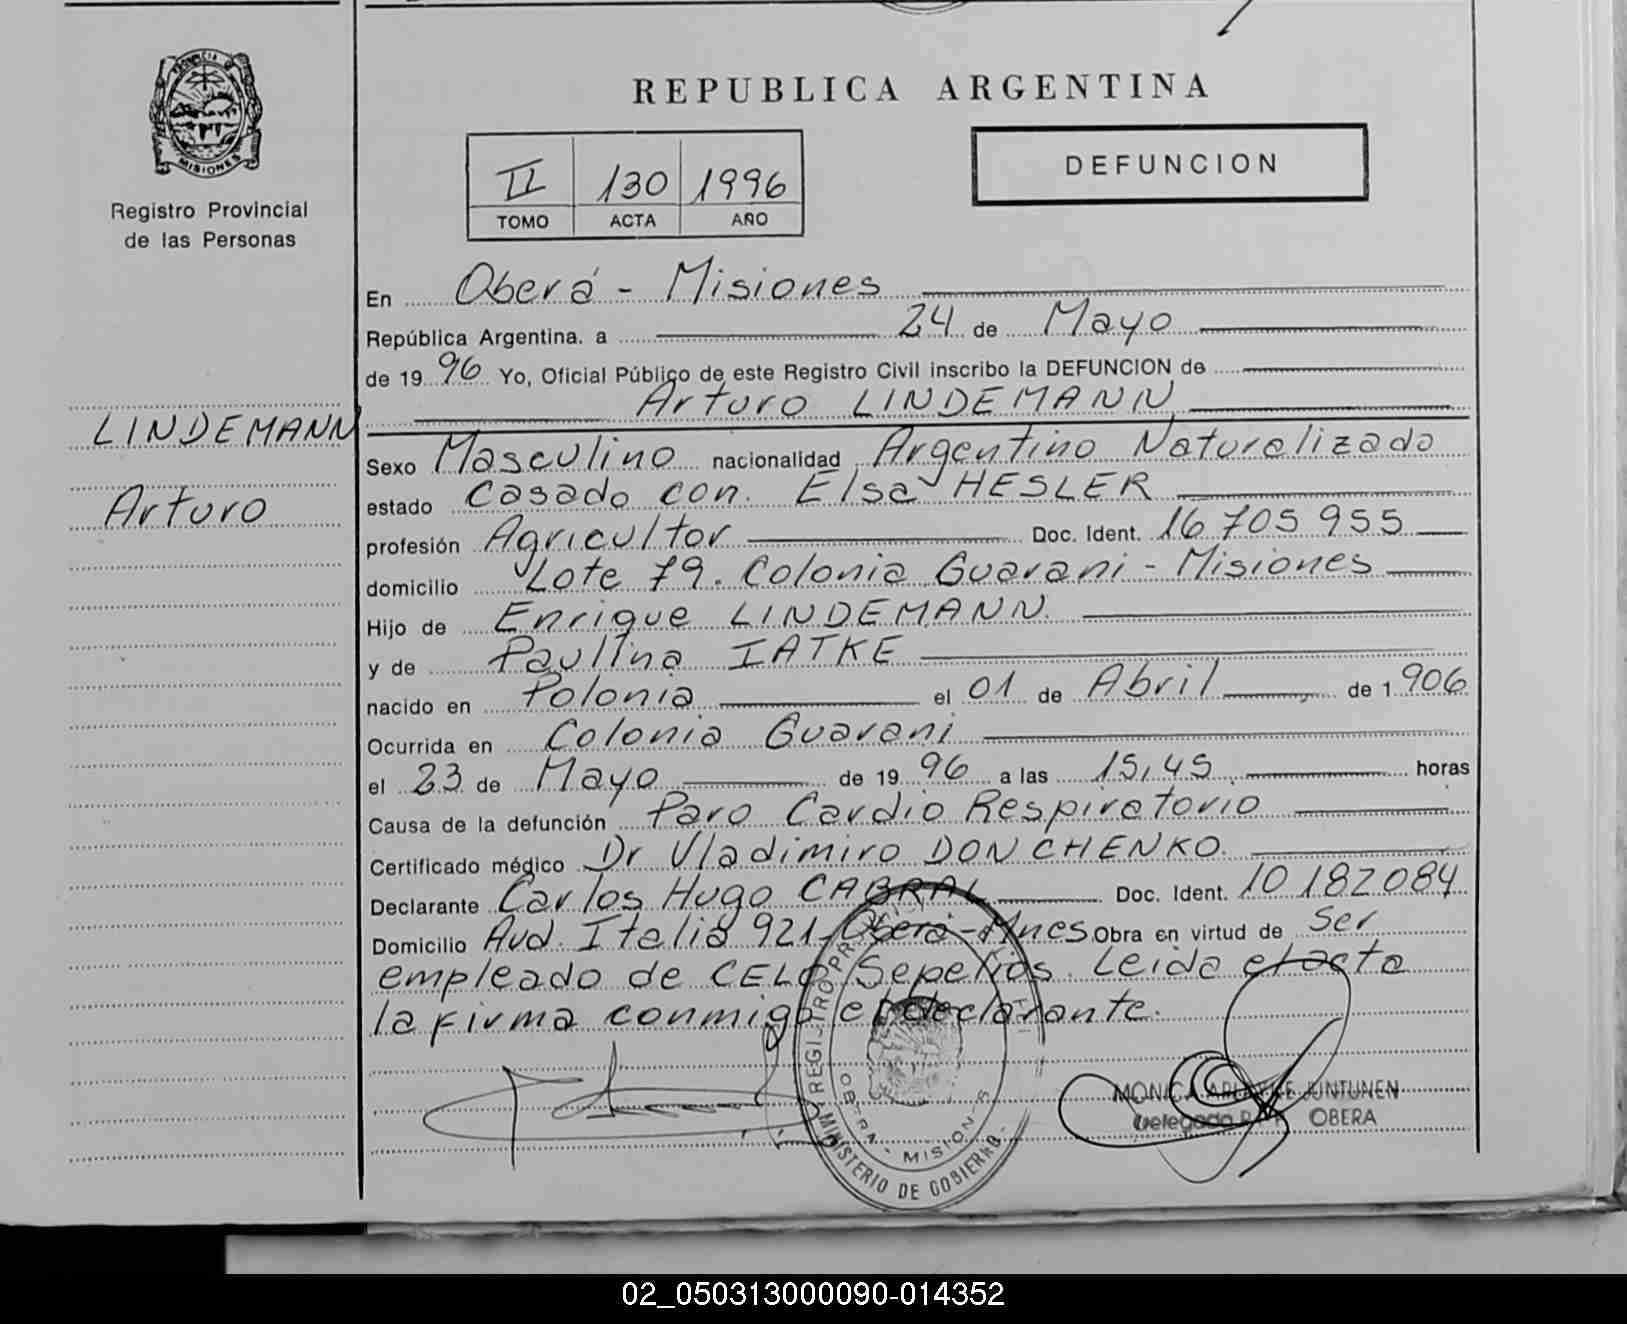 PROVINCIA DE
MISIONES
Registro Provincial
de las Personas
LINDEMANN
Arturo
REPUBLICA ARGENTINA
II 130 1996
TOMO ACTA AÑO
DEFUNCION
En Oberá - Misiones
República Argentina. a 24 de Mayo
de 1996 Yo, Oficial Público de este Registro Civil inscribo la DEFUNCION de
Arturo LINDEMANN
Sexo Masculino nacionalidad Argentino Naturalizado
estado Casado con. Elsa HESLER
profesión Agricultor Doc. Ident. 16 705 955
domicilio Lote 79. Colonia Guarani - Misiones
Hijo de Enrique LINDEMANN.
y de Paulina IATKE
nacido en Polonia el 01 de Abril de 1.906
Ocurrida en Colonia Guarani
el 23 de Mayo de 1996 a las 15,45 horas
Causa de la defunción Paro Cardio Respiratorio
Certificado médico Dr Vladimiro DONCHENKO.
Declarante Carlos Hugo CABRAL Doc. Ident. 10 182084
Domicilio Avd. Italia 921 Oberá-Mnes. Obra en virtud de Ser
empleado de CELO Sepelios. Leida el acta
la firma conmigo el declarante.
REGISTRO PR
OBERA - MISIONES
MINISTERIO DE GOBIERNO.
MONICA JUNTUNEN
Delegada OBERA
02_050313000090-014352